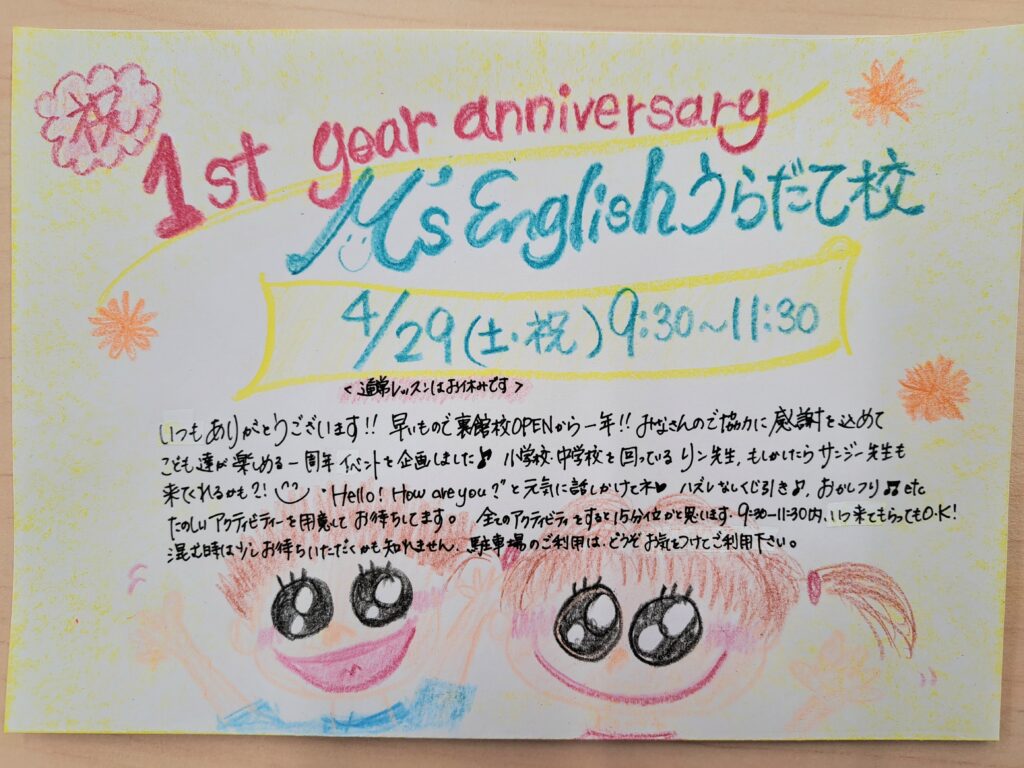 祝
1st year anniversary
M's English うらだて校
4/29(土・祝) 9:30〜11:30
<通常レッスンはお休みです>
いつもありがとうございます!! 早いもので裏館校OPENから一年!! みなさんのご協力に感謝を込めて
こども達が楽しめる一周年イベントを企画しました♪ 小学校・中学校を回っているリン先生、もしかしたらサンジー先生も
来てくれるかも?! "Hello! How are you?"と元気に話しかけてネ♥ ハズレなしくじ引き♪、おかしつり♫ etc
たのしいアクティビティーを用意してお待ちしてます。 全てのアクティビティをすると15分位かと思います。9:30-11:30内、いつ来てもらってもO・K!
混む時は少しお待ちいただくかも知れません、駐車場のご利用は、どうぞお気をつけてご利用下さい。